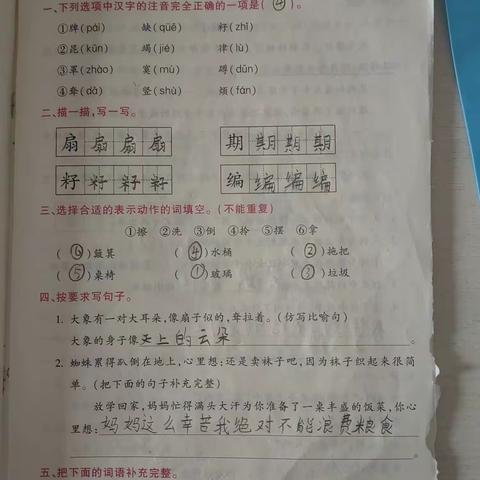 一、下列选项中汉字的注音完全正确的一项是( ④ )。
①牌(pái) 缺(quē) 籽(zhǐ)
②昆(kūn) 竭(jié) 律(lù)
③罩(zhào) 寞(mù) 蹲(dūn)
④牵(dà) 竖(shù) 烦(fán)
二、描一描,写一写。
扇 扇 扇 扇 期 期 期 期
籽 籽 籽 籽 编 编 编 编
三、选择合适的表示动作的词填空。(不能重复)
①擦 ②洗 ③倒 ④拎 ⑤摆 ⑥拿
( ⑥ )簸箕 ( ④ )水桶 ( ② )拖把
( ⑤ )桌椅 ( ① )玻璃 ( ③ )垃圾
四、按要求写句子。
1. 大象有一对大耳朵,像扇子似的,耷拉着。(仿写比喻句)
大象的身子像天上的云朵。
2. 蜘蛛累得趴倒在地上,心里想:还是卖袜子吧,因为袜子织起来很简
单。(把下面的句子补充完整)
放学回家,妈妈忙得满头大汗为你准备了一桌丰盛的饭菜,你心
里想:妈妈这么幸苦我绝对不能浪费粮食
。
五、把下面的词语补充完整。